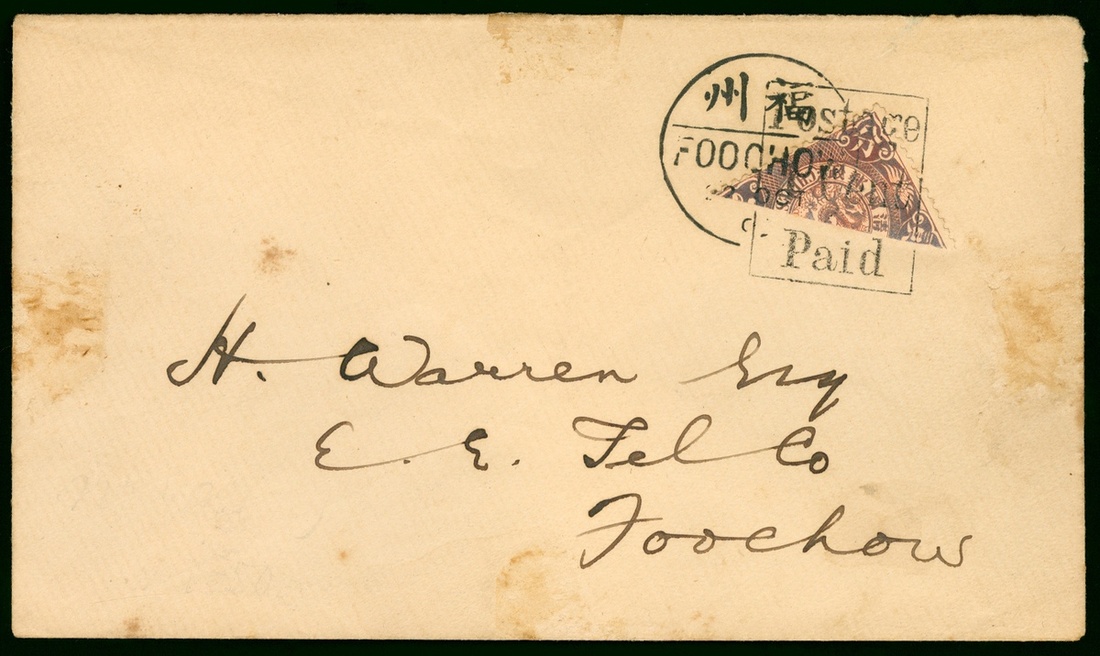 州福
FOOCHOW
OCT
Postage
1 Cent
Paid
分
H. Warren Esq
E. E. Tel Co
Foochow